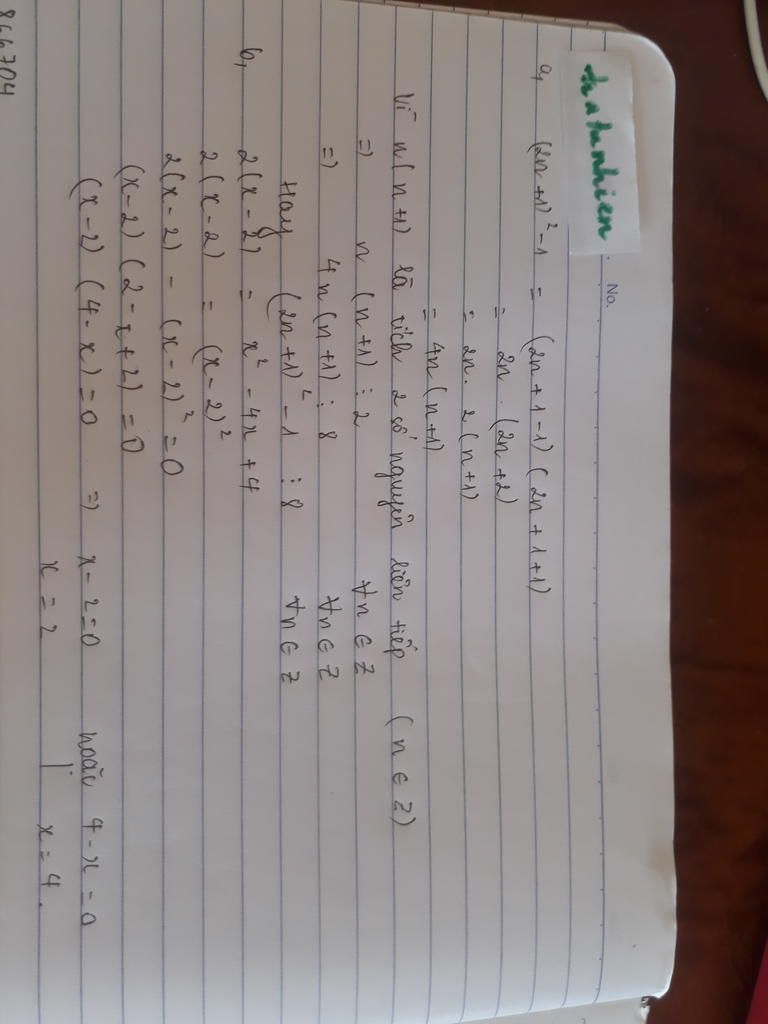 thatunhien
No.
a, (2n+1)² - 1 = (2n+1-1) (2n+1+1)
= 2n . (2n+2)
= 2n. 2(n+1)
= 4n(n+1)
Vì n(n+1) là tích 2 số nguyên liên tiếp (n ∈ Z)
=> n(n+1) ⋮ 2 ∀n ∈ Z
=> 4n(n+1) ⋮ 8 ∀n ∈ Z
Hay (2n+1)² - 1 ⋮ 8 ∀n ∈ Z
b, 2(x-2) = x² - 4x + 4
2(x-2) = (x-2)²
2(x-2) - (x-2)² = 0
(x-2) (2-x+2) = 0
(x-2) (4-x) = 0 => x-2=0 hoặc 4-x=0
x = 2 | x = 4.
866704